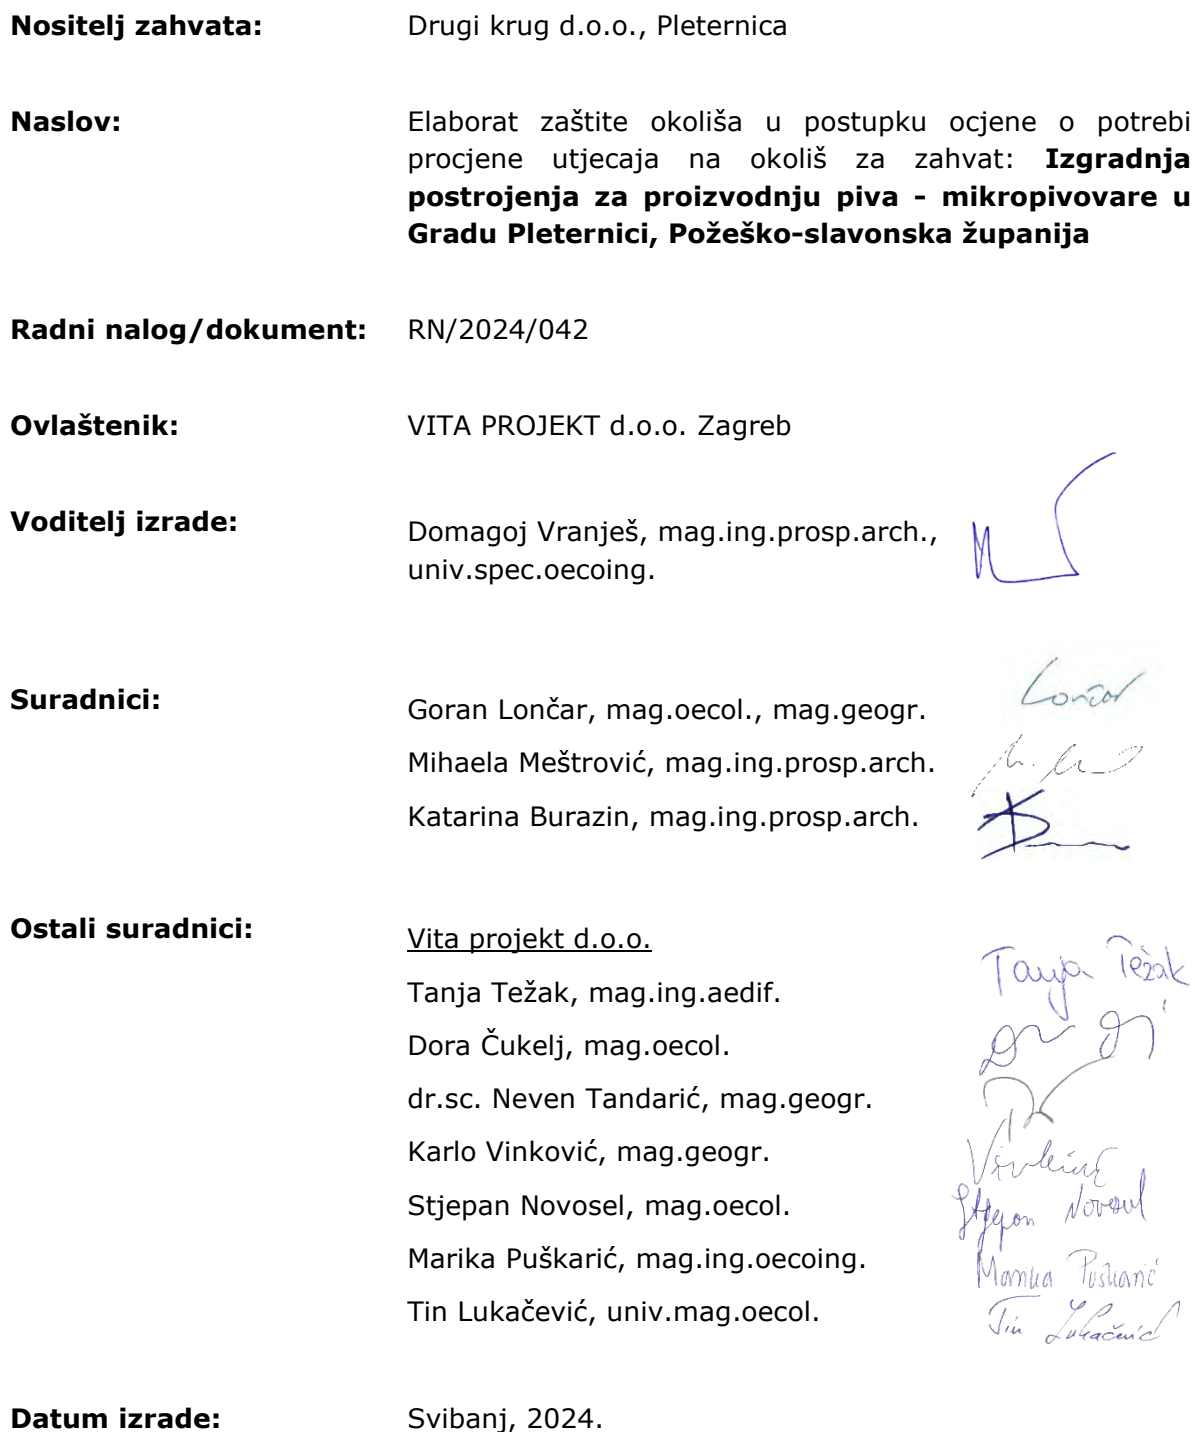 Nositelj zahvata: Drugi krug d.o.o., Pleternica
Naslov: Elaborat zaštite okoliša u postupku ocjene o potrebi
procjene utjecaja na okoliš za zahvat: Izgradnja
postrojenja za proizvodnju piva - mikropivovare u
Gradu Pleternici, Požeško-slavonska županija
Radni nalog/dokument: RN/2024/042
Ovlaštenik: VITA PROJEKT d.o.o. Zagreb
Voditelj izrade: Domagoj Vranješ, mag.ing.prosp.arch.,
univ.spec.oecoing.
Suradnici: Goran Lončar, mag.oecol., mag.geogr. Lončar
Mihaela Meštrović, mag.ing.prosp.arch.
Katarina Burazin, mag.ing.prosp.arch.
Ostali suradnici: Vita projekt d.o.o.
Tanja Težak, mag.ing.aedif. Tanja Težak
Dora Čukelj, mag.oecol.
dr.sc. Neven Tandarić, mag.geogr.
Karlo Vinković, mag.geogr. Vinković
Stjepan Novosel, mag.oecol. Stjepan Novosel
Marika Puškarić, mag.ing.oecoing. Marika Puškarić
Tin Lukačević, univ.mag.oecol. Tin Lukačević
Datum izrade: Svibanj, 2024.